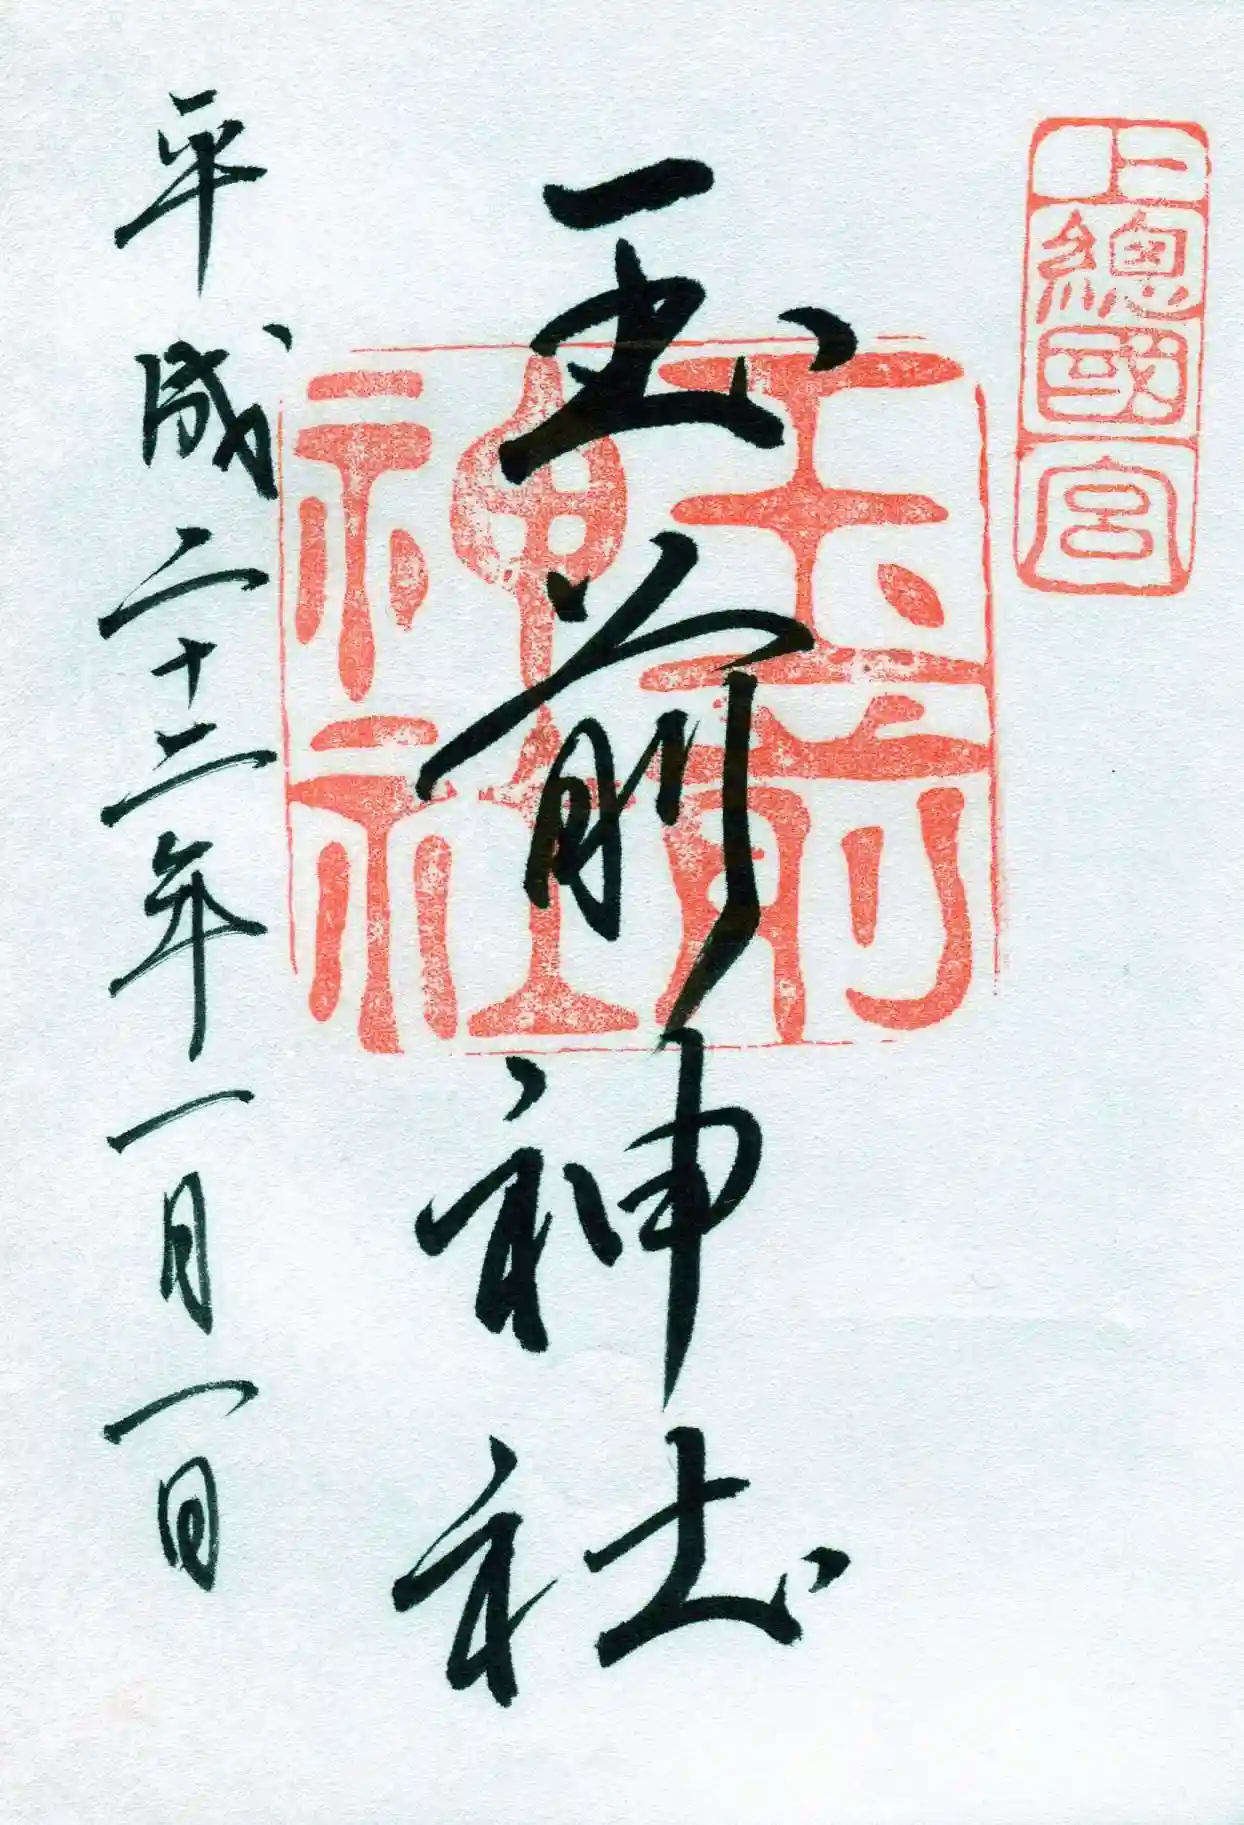 上總國一宮
玉前神社
玉前
神社
平成二十二年一月一日